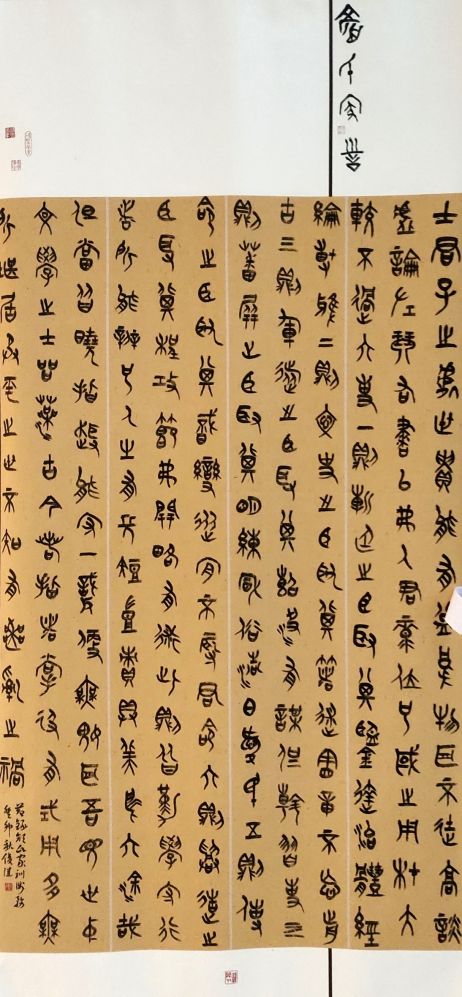 士君子之處世貴能有益於物耳不徒高談
虛論左琴右書以費人君祿位也國之用材大
較不過六事一則朝廷之臣取其鑒達治體經
綸博雅二則文史之臣取其著述憲章不忘前
古三則軍旅之臣取其斷決有謀強幹習事四
則藩屏之臣取其明練風俗清白愛民五則使
命之臣取其識變從宜不辱君命六則興造之
臣取其程功節費開略有術此則皆勤學守行
者所能辨也人性有長短豈責具美於六塗哉
但當皆曉指趣能守一職便無愧耳吾見世中
文學之士品藻古今若指諸掌及有試用多無
所堪居承平之世不知有喪亂之禍
節錄顏氏家訓涉務
癸卯秋俊